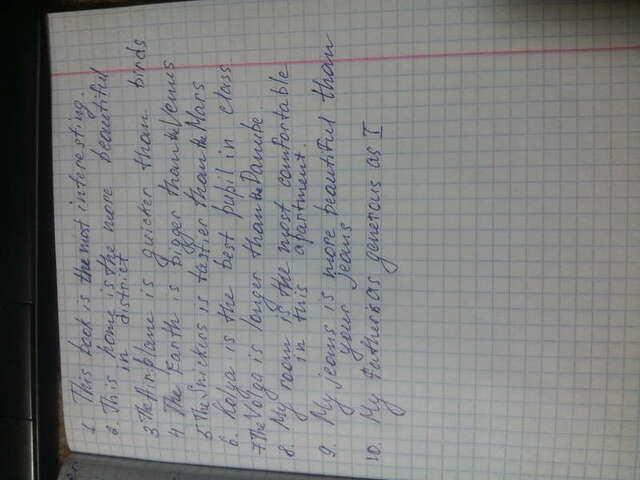 1. This book is the most interesting.
2. This home is the more beautiful
in district
3 The Airplane is quicker than birds
4 The Earth is bigger than the Venus
5 The Snickers is tastier than the Mars
6. Kolya is the best pupil in class
7 The Volga is longer than the Danube.
8. My room is the most comfortable
in this apartment.
9. My jeans is more beautiful than
your jeans
10. My father is as generous as I